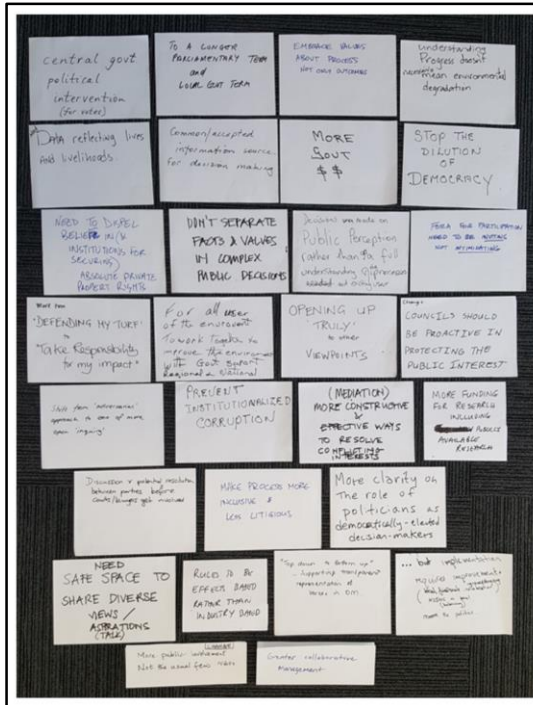 central govt
political
intervention
(for votes)
TO A LONGER
PARLIAMENTARY TERM
and
LOCAL GOVT TERM
EMBRACE VALUES
ABOUT PROCESS
NOT ONLY OUTCOMES
understanding
Progress doesn't
mean environmental
degradation
DATA reflecting lives
AND livelihoods.
Common/accepted
information source
for decision making
MORE
GOVT
$$
STOP THE
DILUTION
OF
DEMOCRACY
NEED TO DISPEL
BELIEF IN/&
INSTITUTIONS FOR
SECURING
ABSOLUTE PRIVATE
PROPERTY RIGHTS
DON'T SEPARATE
FACTS & VALUES
IN COMPLEX
PUBLIC DECISIONS
Decisions made on
Public Perception
rather than a full
understanding of
needed
FORA FOR PARTICIPATION
NEED TO BE INVITING
NOT INTIMIDATING
Move from
'DEFENDING MY TURF'
to
'Take Responsibility
for my impact'
For all user
of the environment
To work together to
improve the environment
with Govt support
Regional & National
OPENING UP
'TRULY' to other
VIEWPOINTS
COUNCILS SHOULD
BE PROACTIVE IN
PROTECTING THE
PUBLIC INTEREST
Shift from 'adversarial'
approach to one of more
open 'inquiry'
PREVENT
INSTITUTIONALIZED
CORRUPTION
(MEDIATION)
MORE CONSTRUCTIVE
&
EFFECTIVE WAYS
TO RESOLVE
CONFLICTING
INTERESTS
MORE FUNDING
FOR RESEARCH
INCLUDING
PUBLIC
AVAILABLE
RESEARCH
Discussion & potential resolution
between parties before
courts/lawyers get involved
MAKE PROCESS MORE
INCLUSIVE &
LESS LITIGIOUS
More clarity on
The role of
politicians as
democratically-elected
decision-makers
NEED
SAFE SPACE TO
SHARE DIVERSE
VIEWS/
ASPIRATIONS
(TALK)
RULES TO BE
EFFECTS BASED
RATHER THAN
INDUSTRY BASED
"Top down to bottom up"
- supporting transparent
representation of
voices in DM.
... but implementation
requires improvement
More public involvement
Not the usual few voices
Greater collaborative
Management